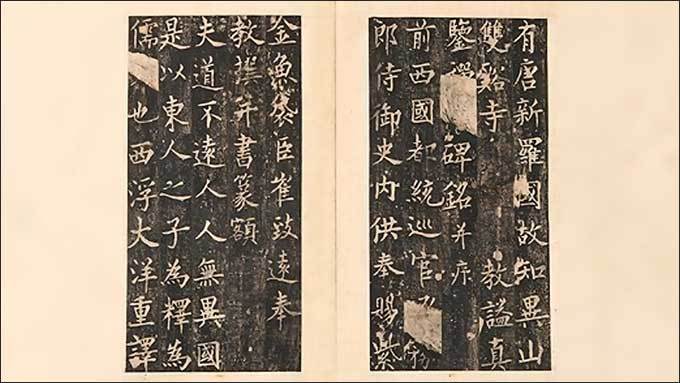 有唐新羅國故知異山
雙谿寺 教謚真
鑒禪 碑銘并序
前西國都統巡官 務
郎侍御史內供奉賜紫
金魚袋臣崔致遠奉
教撰并書篆額
夫道不遠人人無異國
是以東人之子為釋為
儒 也西浮大洋重譯